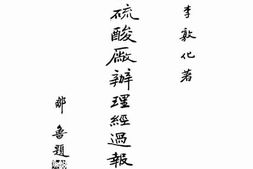 李敦化著
硫酸厰辦理經過報
鄒魯題